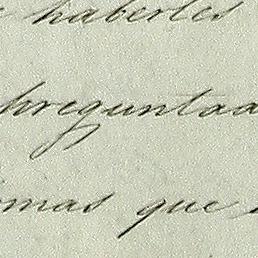 haberles
preguntad
mas que